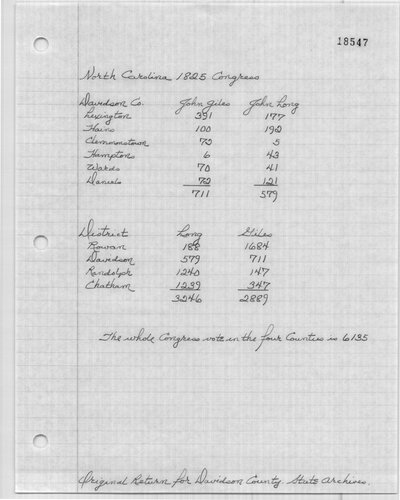 18547
North Carolina 1825 Congress
Davidson Co. John Giles John Long
Lexington 391 177
Hains 100 192
Clemmonstown 72 5
Hamptons 6 43
Wards 70 41
Daniels 72 121
711 579
District Long Giles
Rowan 188 1684
Davidson 579 711
Randolph 1240 147
Chatham 1239 347
3246 2889
The whole Congress vote in the four Counties is 6135
Original Return for Davidson County. State Archives.